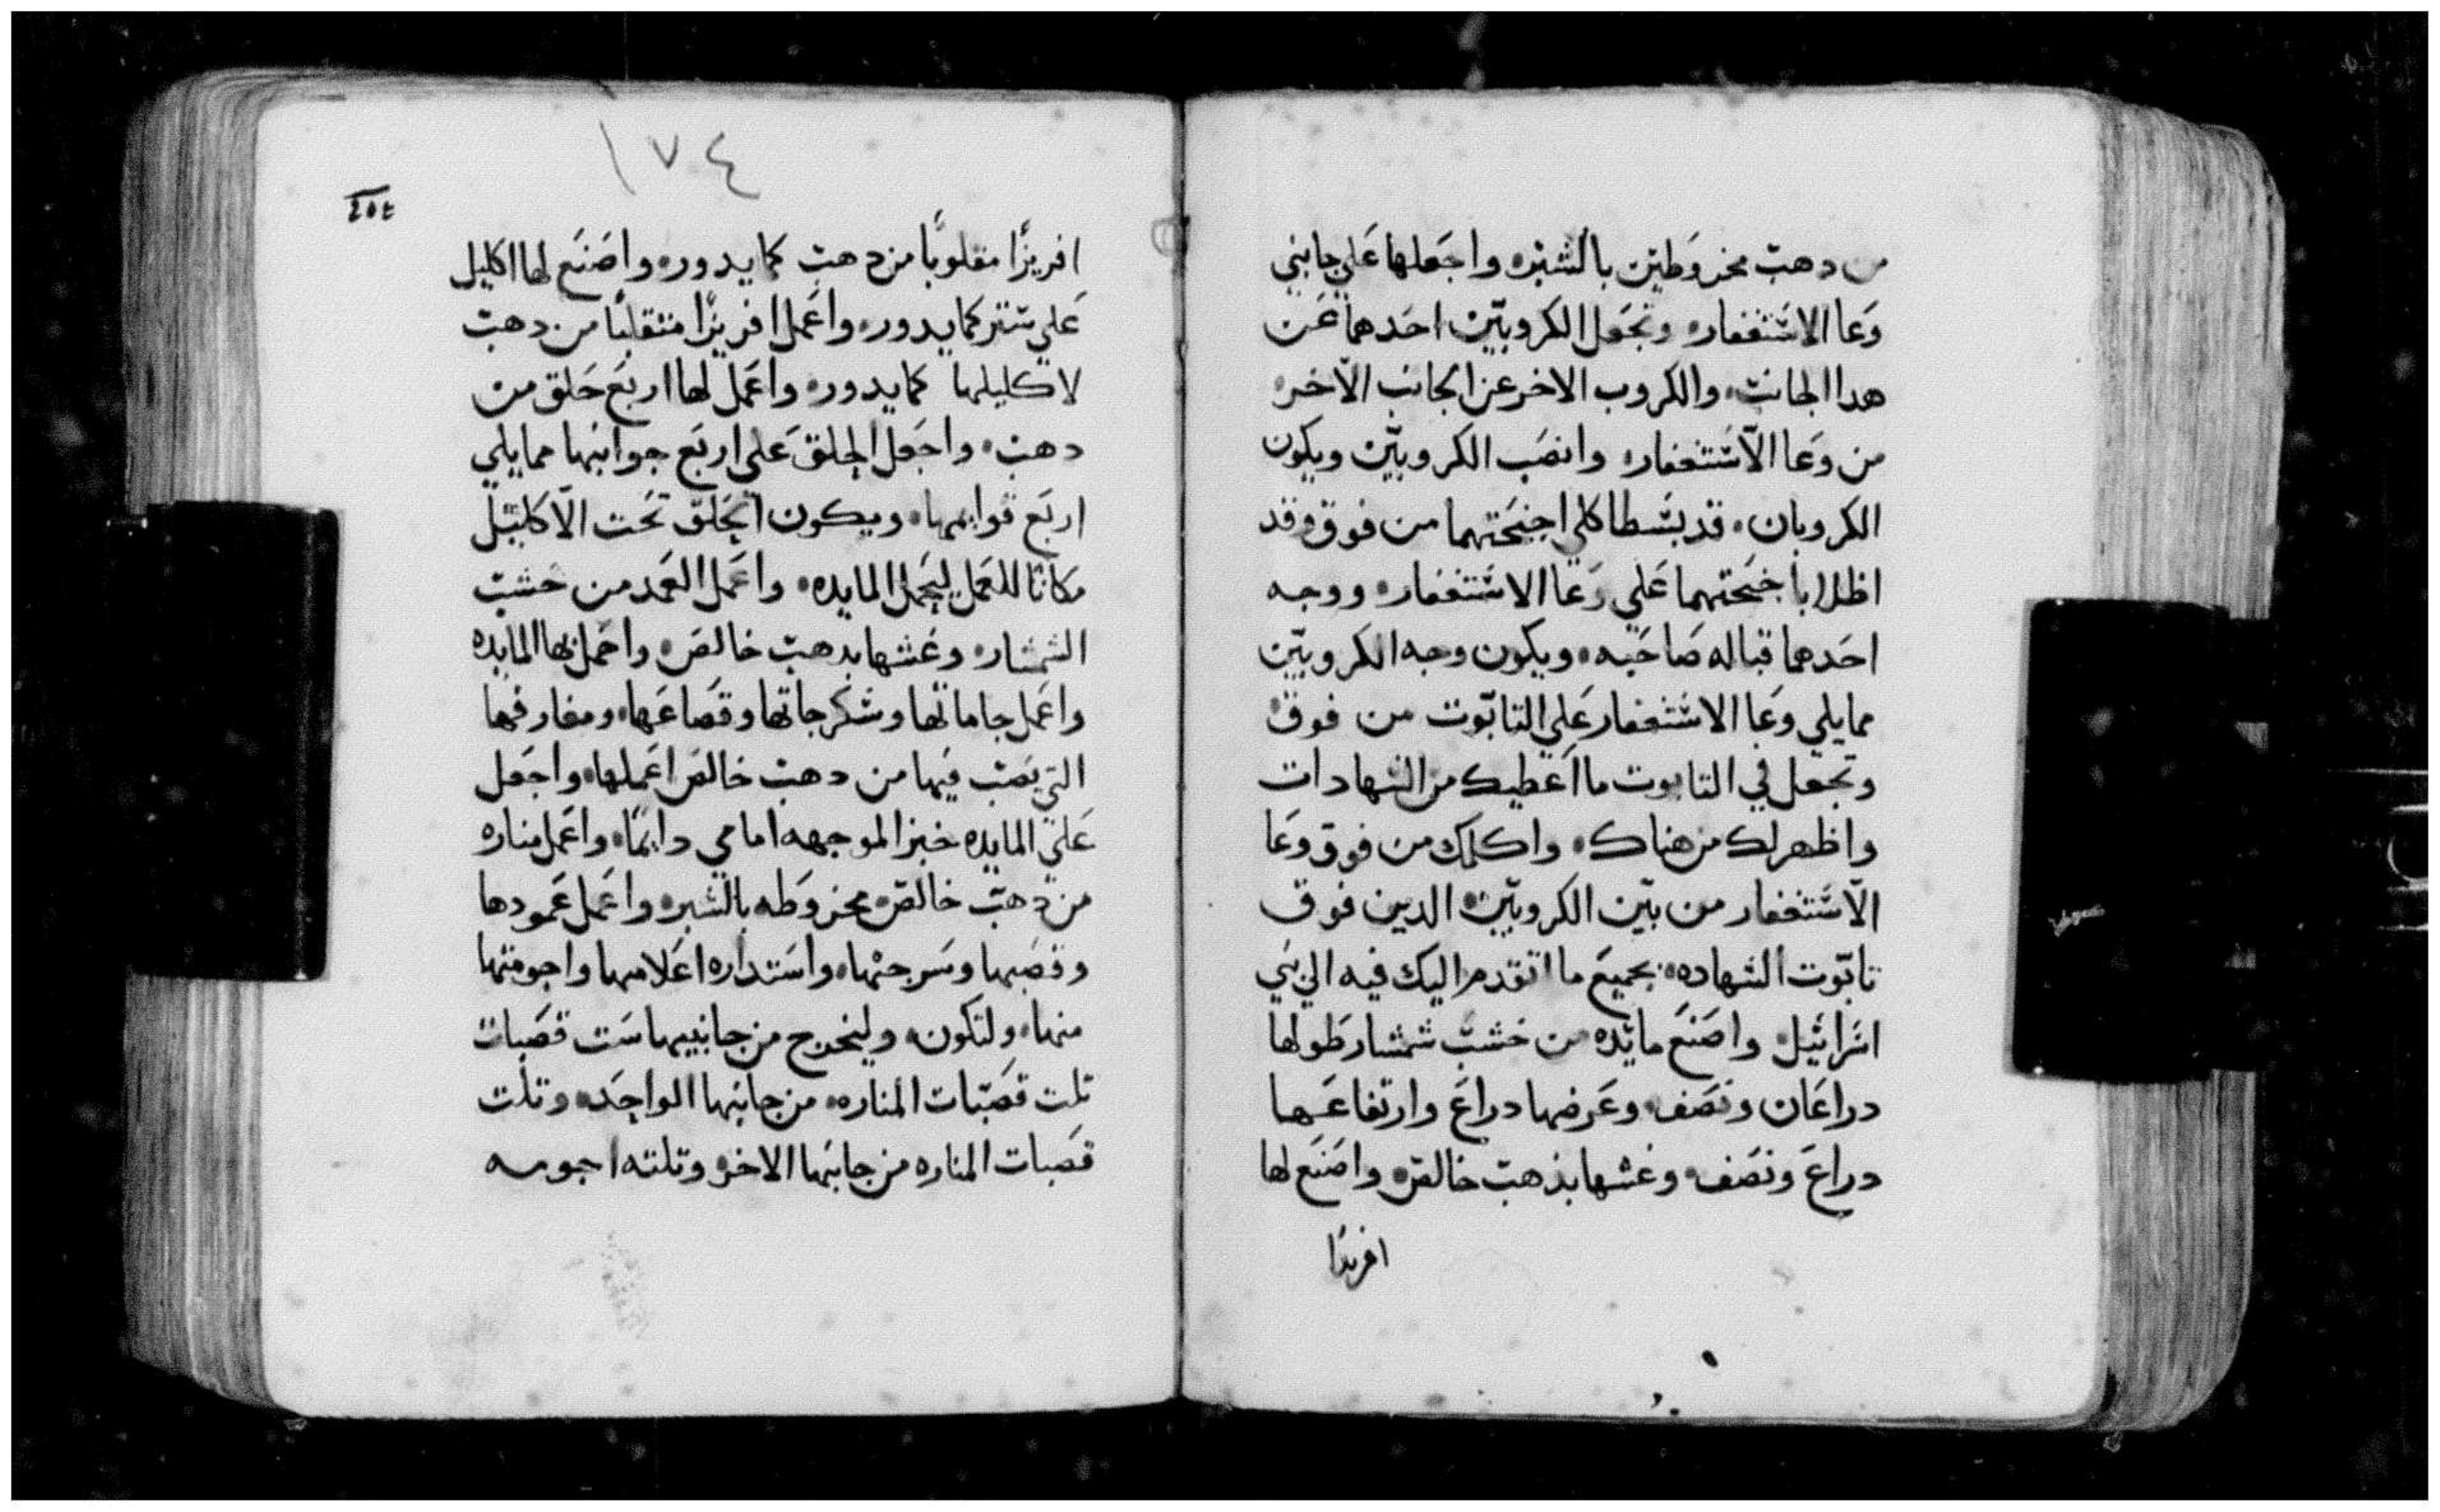 من دهب مخروطين بالشبر، واجعلها علي جانبي
وعا الاستغفار، وتجعل الكروبين احدهما عن
هدا الجانب، والكروب الاخر عن الجانب الاخر
من وعا الاستغفار، وانصب الكروبين ويكون
الكروبان، قد بسطا كلي اجنحتهما من فوق وقد
اظلا باجنحتهما علي وعا الاستغفار، ووجه
احدهما قباله صاحبه، ويكون وجه الكروبين
مما يلي وعا الاستغفار علي التابوت من فوق
وتجعل في التابوت ما اعطيك من الشهادات
واظهر لك من هناك، واكلمك من فوق وعا
الاستغفار من بين الكروبين، الدين فوق
تابوت الشهاده، بجميع ما اتقدم اليك فيه الي بني
اسرائيل، واصنع مائده من خشب شمشار طولها
دراعان ونصف، وعرضها دراع وارتفاعها
دراع ونصف، وغشها بذهب خالص، واصنع لها
افريزا
١٧٤
افريزا مقلوبا من دهب كما يدور، واصنع لها اكليل
علي شبر كما يدور، واعمل افريزا منقلبا من دهب
لاكليلها كما يدور، واعمل لها اربع حلق من
دهب، واجعل الحلق علي اربع جوانبها مما يلي
اربع قوايمها، ويكون الحلق تحت الاكليل
مكانا للعمل ليحمل المايده، واعمل العمد من خشب
الشمشار، وغشها بدهب خالص، واحمل بها المايده
واعمل جاماتها وسكرجاتها وقصاعها، ومغارفها
التي يصب فيها من دهب خالص اعملها، واجعل
علي المايده خبز الموجهه امامي دايما، واعمل مناره
من دهب خالص، مخروطه بالشبر، واعمل عمودها
وقصبها وسرجتها، واستداره اعلامها واجومتها
منها، ولتكون، وليخرج من جانبيها ست قصبات
تلت قصبات المناره، من جانبها الواحد، وتلت
قصبات المناره من جانبها الاخر، وتلته